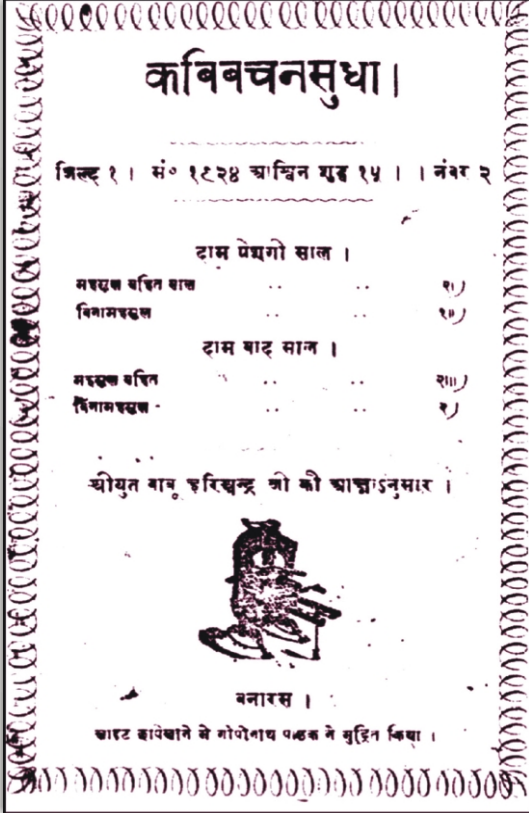 कबिबचनसुधा।
जिल्द १ । सं० १९२४ आश्विन शुद्ध १५ । । नंबर २
दाम पेशगी साल ।
महसूल सहित साल .. .. २।)
बिनामहसूल .. .. १॥)
दाम बाद साल ।
महसूल सहित .. .. २॥।)
बिनामहसूल - .. .. २)
श्रीयुत बाबू हरिश्चन्द्र जी की आज्ञाऽनुसार ।
बनारस ।
लाइट छापेखाने में गोपीनाथ पाठक ने मुद्रित किया ।